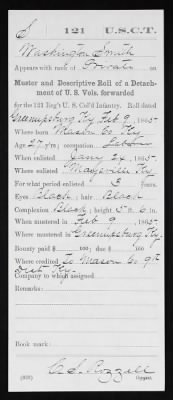 S 121 U.S.C.T.
Washington Smith
Appears with rank of Private on
Muster and Descriptive Roll of a Detach-
ment of U. S. Vols. forwarded
for the 121 Reg't U. S. Col'd Infantry. Roll dated
Greenupsburg Ky Feb 9, 1865.
Where born Mason Co Ky
Age 27 y'rs; occupation Labor
When enlisted Jany 24, 1865.
Where enlisted Maysville Ky
For what period enlisted 3 years.
Eyes Black; hair Black
Complexion Black; height 5 ft. 6 in.
When mustered in Feb 9, 1865.
Where mustered in Greenupsburg Ky.
Bounty paid $ 100; due $ 100
Where credited to Mason Co 9th
Dist Ky.
Company to which assigned
Remarks:
Book mark:
C. S. Rozzell
(339) Copyist.